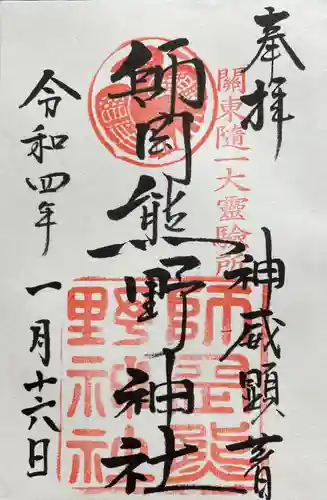 奉拝
神威顕著
關東随一大靈驗所
師岡熊野神社
師岡熊野神社
令和四年
一月十六日